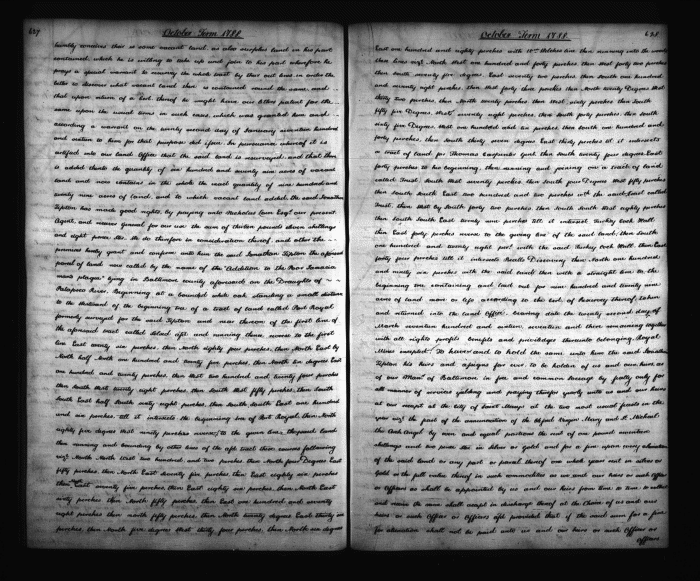 October Term 1788
hereby conceives there is some vacant land, as also surplus land in his part
contained, which he is willing to take up and join to his part wherefore he
prays a special warrant to resurvey the whole tract by
better to discover what vacant land there is contained round the same and
that upon return of a Cert. thereof he might have our letters patent for the
same upon the usual terms in such cases, which was granted him and
according a warrant on the twenty second day of January seventeen hundred
and sixteen to him for that purpose did issue. In pursuance whereof it is
certified into our Land Office that the said land is resurveyed, and that there
is added thereto the quantity of six hundred and twenty nine acres of vacant
land and now contains in the whole the real quantity of nine hundred and
twenty nine acres of land, and to which vacant land added the said Jonathan
Tipton has made good rights, by paying unto Nicholas Lowe Esq. our present
Agent, and receiver general for our use the sum of thirteen pounds eleven shillings
and eight pence ster. We do therefore in consideration thereof and other the
premises hereby grant and confirm unto him the said Jonathan Tipton the aforesaid
parcel of land now called by the name of the "Addition to the Poor Jamaica
mans plague" lying in Baltimore county aforesaid on the Draughts of
Patapsco River. Beginning at a bounded white oak standing a small distance
to the eastward of the beginning tree of a tract of land called Port Royal
formerly surveyed for the said Tipton and near thereon of the first line of
the aforesaid tract called and running thence reverse to the first
line East ninety six perches, then North eighty four perches, then North East by
North half North one hundred and twenty five perches, then North six degrees East
one hundred and twenty perches, then West two hundred and twenty four perches
then South West twenty eight perches, then South West fifty perches, then South
South East half South sixty eight perches, then South South East one hundred
and six perches, till it intersects the beginning tree of Port Royal, then North
eighty five degrees West ninety perches
then running and bounding by other lines of the aft. tract three courses following
viz. North North West two hundred and two perches then North four Degrees East
fifty perches, then North East seventy five perches then East eighty six perches
then East seventy five perches, then East eighty six perches, then North East
sixty perches, then North fifty perches, then East one hundred, and seventy
eight perches, then north fifty perches, then North twenty degrees East thirty six
perches, then North five degrees West thirty four perches, then North six degrees
October Term 1788
East one hundred and eighty perches with then running into the woods
then lines viz. North West one hundred and forty perches, then West forty two perches
then South seventy five degrees East seventy two perches, then South one hundred
and ninety eight perches, then West forty three perches, then North twenty Degrees West
thirty two perches, then North twenty perches, then West sixty perches then South
fifty five Degrees, West seventy eight perches, then South forty perches, then South
sixty five Degrees, West one hundred and six perches, then South one hundred and
forty perches, then South thirty seven degrees East thirty perches till it intersects
a tract of land for Thomas Carpenter Gent. then South twenty four degrees East
forty perches to his beginning, then running and joining on a tract of land
called Trust South West seventy perches, then South four Degrees West fifty perches
then South South East one hundred and two perches with the said Land called
Trust, then West by South forty two perches, then South South West eighty perches
then South South East twenty nine perches till it intersects Turkey Cock Hall
then East forty perches reverse to the line of the said land, then South
one hundred and twenty per. with the said Turkey Cock Hall, then East
forty four perches till it intersects Discovery then North one hundred
and ninety six perches with the said tract then with a straight line to the
beginning tree containing and laid out for nine hundred and twenty nine
acres of land more or less according to the Cert. of Resurvey thereof, taken
and returned into the Land Office, bearing date the twenty second day of
March seventeen hundred and sixteen, seventeen and there remaining together
with all rights profits benefits and priviledges thereunto belonging, Royal
Mines excepted. To have and to hold the same unto him the said Jonathan
Tipton his heirs and assigns for ever. To be holden of us and our heirs, as
of our Manr. of Baltimore in free and common soccage by fealty only for
all manner of services yielding and paying therefor yearly unto us and our heirs
at our receipt at the City of Saint Marys at the two most usual feasts in the
year viz. the feast of the annunciation of the blessed Virgin Mary and St. Michael
the Archangel by even and equal portions the rent of one pound seventeen
shillings and two pence ster. in silver or gold and for a fine upon every alienation
of the said land or any part or parcel thereof one whole years rent in silver or
Gold or the full value thereof in such commodities as we and our heirs or such Officer
or Officers as shall be appointed by us and our heirs from time to time to collect
and receive the same shall accept in discharge thereof at the Choice of us and our
heirs or such Officer or Officers aft. provided that if the said sum for a fine
for alienation shall not be paid unto us and our heirs or such Officer or
Officers